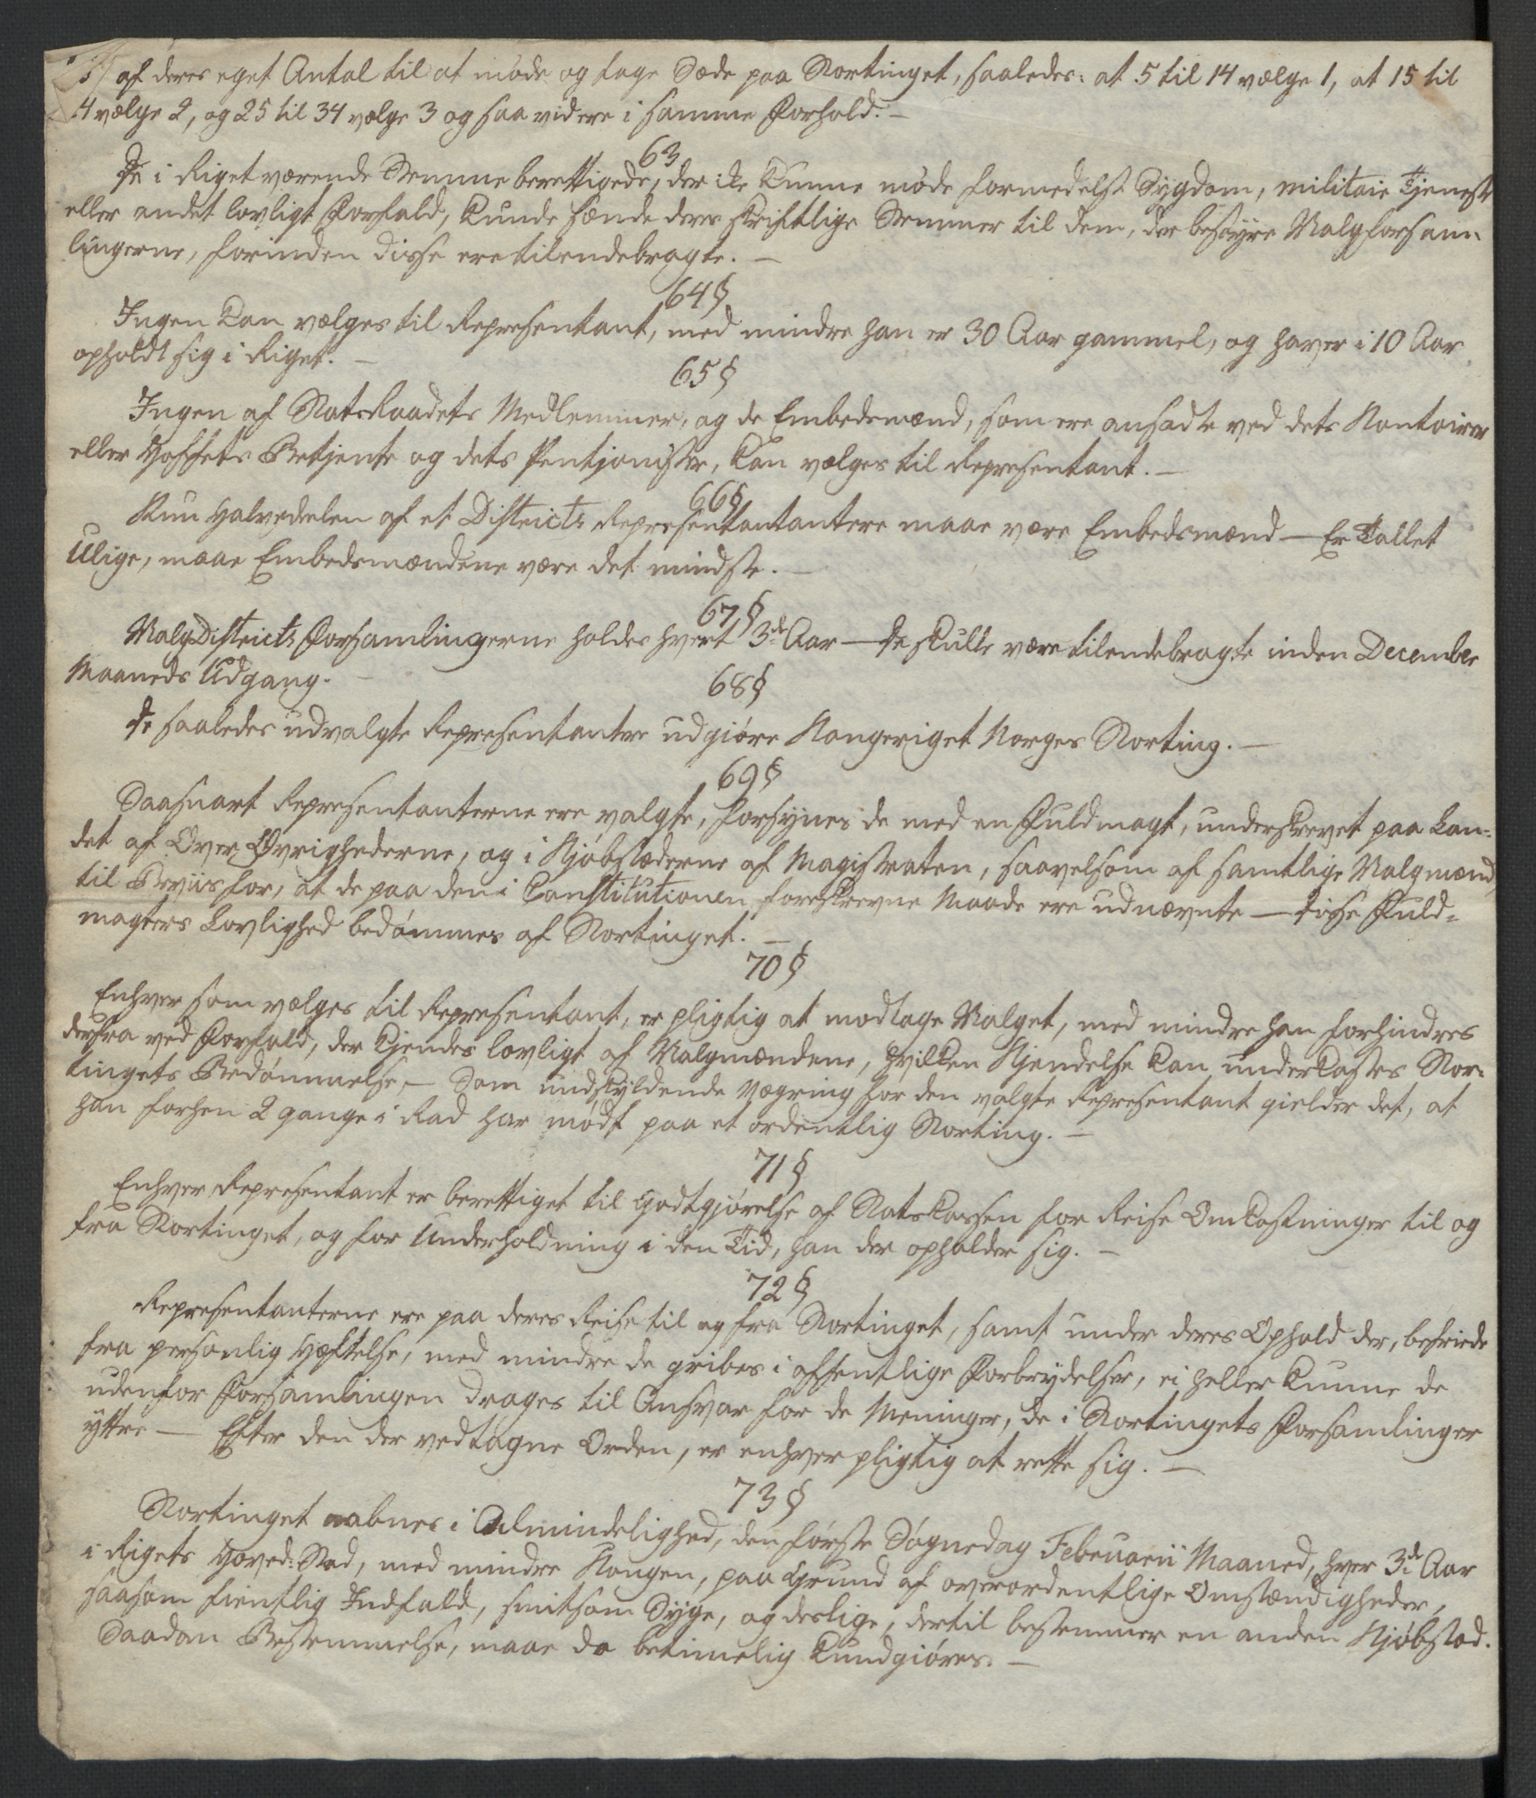 af deres eget Antal til at møde og tage Sæde paa Stortinget, saaledes: at 5 til 14 vælge 1, at 15 til
4 vælge 2, og 25 til 34 vælge 3 og saa videre i samme Forhold. —
63
De i Riget værende Stemmeberettigede, der ike kunne møde formedelst Sygdom, militaie Tjeneste
eller andet lovligt Forfald, kunde sænde deres skriftlige Stemmer til dem, der bestyre Valgforsam-
lingerne, forinden disse ere tilendebragte. —
64 §
Ingen kan vælges til Representant, med mindre han er 30 Aar gammel, og haver i 10 Aar
opholdt sig i Riget. —
65 §
Ingen af StatsRaadets Medlemmer, og de Embedsmænd, som ere ansadte ved dets Kontoirer
eller Hoffets Betjente og dets Pentjonister, kan vælges til Representant. —
66 §
Kun Halvedelen af et Districts Representantantere maae være Embedsmænd — Er Tallet
Ulige, maae Embedsmændene være det mindste. —
67 §
ValgDistricts Forsamlingerne holdes hvert 3de Aar — De skulle være tilendebragte inden December
Maaneds Udgang. —
68 §
De saaledes udvalgte Representantere udgiøre Kongeriget Norges Storting. —
69 §
Saasnart Representanterne ere valgte, forsynes de med en Fuldmagt, underskrevet paa Lan-
det af Over Øvrighederne, og i Kjøbstæderne af Magistraten, saavelsom af samtlige Valgmænd
til Beviis for, at de paa den i Constitutionen foreskrevne Maade ere udnævnte — Disse Fuld-
magters Lovlighed bedømmes af Stortinget. —
70 §
Enhver som vælges til Representant, er pligtig at modtage Valget, med mindre han forhindres
derfra ved Forfald, der kjendes lovligt af Valgmændene, hvilken Kjendelse kan underkastes Stor-
tingets Bedømmelse, — Som undskyldende Vægring for den valgte Representant gielder det, at
han forhen 2 gange i Rad har mødt paa et ordentlig Storting. —
71 §
Enhver Representant er berettiget til Godtgjørelse af Statskassen for Reise Omkostninger til og
fra Stortinget, og for Underholdning i den Tid, han der opholder sig. —
72 §
Representanterne ere paa deres Reise til og fra Stortinget, samt under deres Ophold der, befriede
fra personlig Hæftelse, med mindre de gribes i offentlige Forbrydelser, ei heller kunne de
udenfor Forsamlingen drages til Ansvar for de Meninger, de i Stortingets Forsamlinger
yttre — Efter den der vedtagne Orden, er enhver pligtig at rette sig. —
73 §
Stortinget aabnes i Almindelighed, den første Søgnedag Februarii Maaned, hver 3de Aar
i Rigets Hoved: Stad, med mindre Kongen, paa Grund af overordentlige Omstændigheder,
saasom fientlig Indfald, smitsom Syge, og deslige, dertil bestemmer en anden Kjøbstad.
Saadan Bestemmelse, maae da betimelig kundgiøres. —